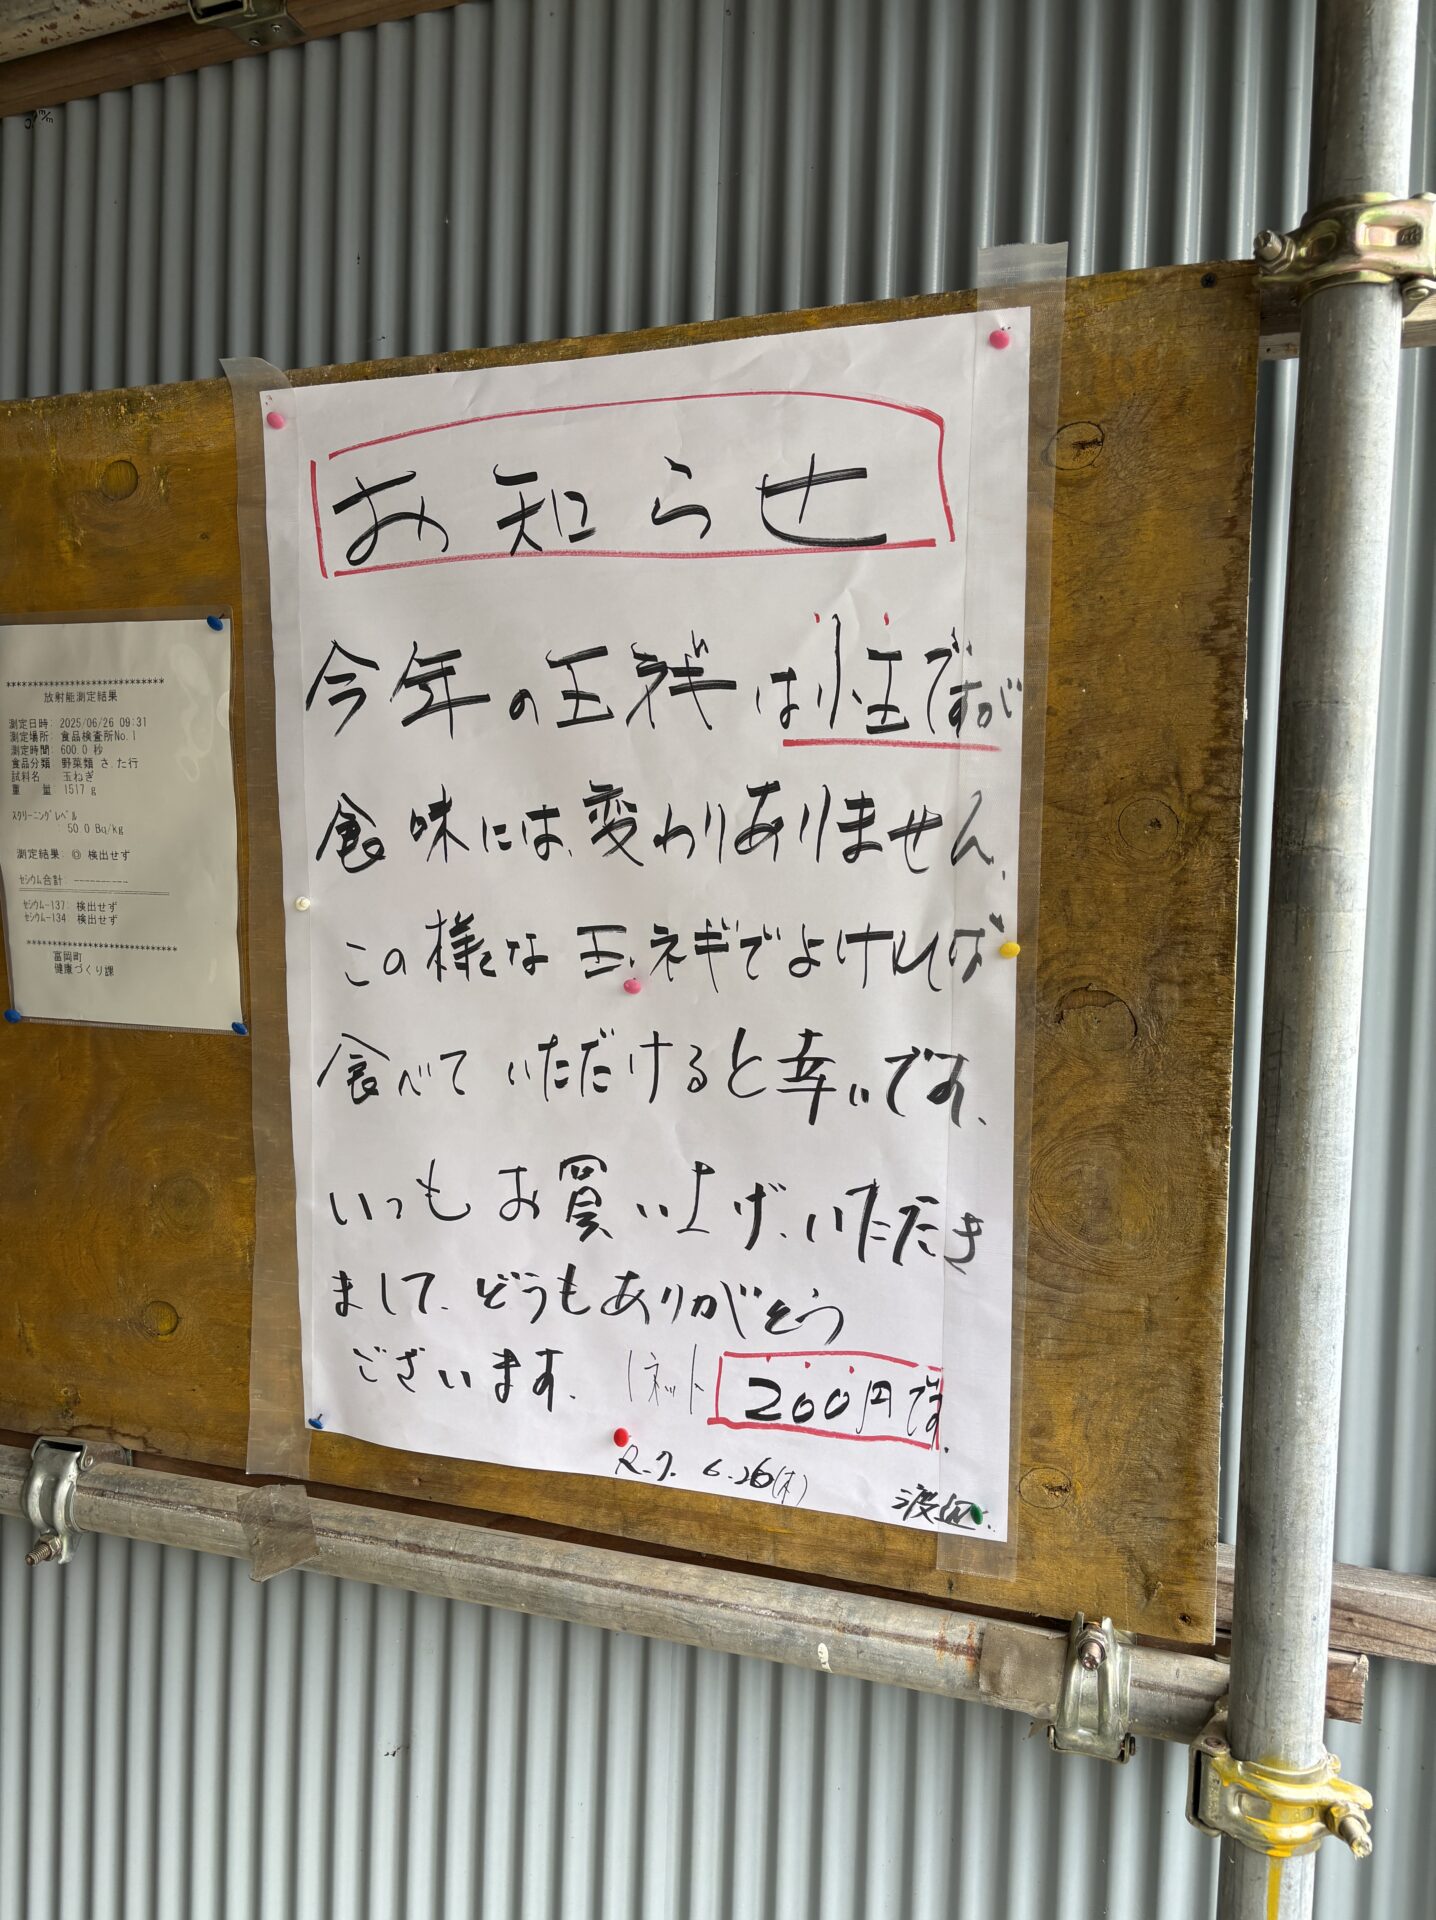 お知らせ
今年の玉ネギは小玉ですが
食味には、変わりありません。
この様な玉ネギでよければ
食べていただけると幸いです。
いつもお買い上げ、いただき
まして、どうもありがとう
ございます。 1ネット 200円です。
R.7. 6.26(木) 渡辺.
*****************************
放射能測定結果
測定日時: 2025/06/26 09:31
測定場所: 食品検査所No.1
測定時間: 600.0 秒
食品分類 野菜類 さ.た行
試料名 玉ねぎ
重 量 1517 g
スクリーニングレベル
: 50.0 Bq/kg
測定結果: ◎ 検出せず
セシウム合計: ----------
セシウム-137: 検出せず
セシウム-134: 検出せず
****************************
富岡町
健康づくり課